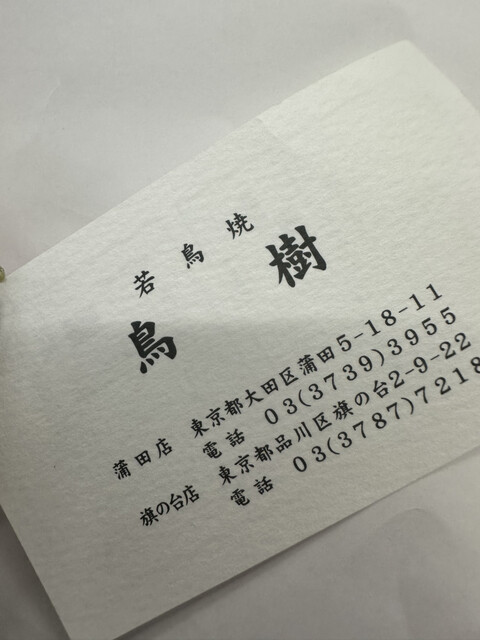 若鳥焼
鳥樹
蒲田店 東京都大田区蒲田5-18-11
電話 03(3739)3955
旗の台店 東京都品川区旗の台2-9-22
電話 03(3787)7218